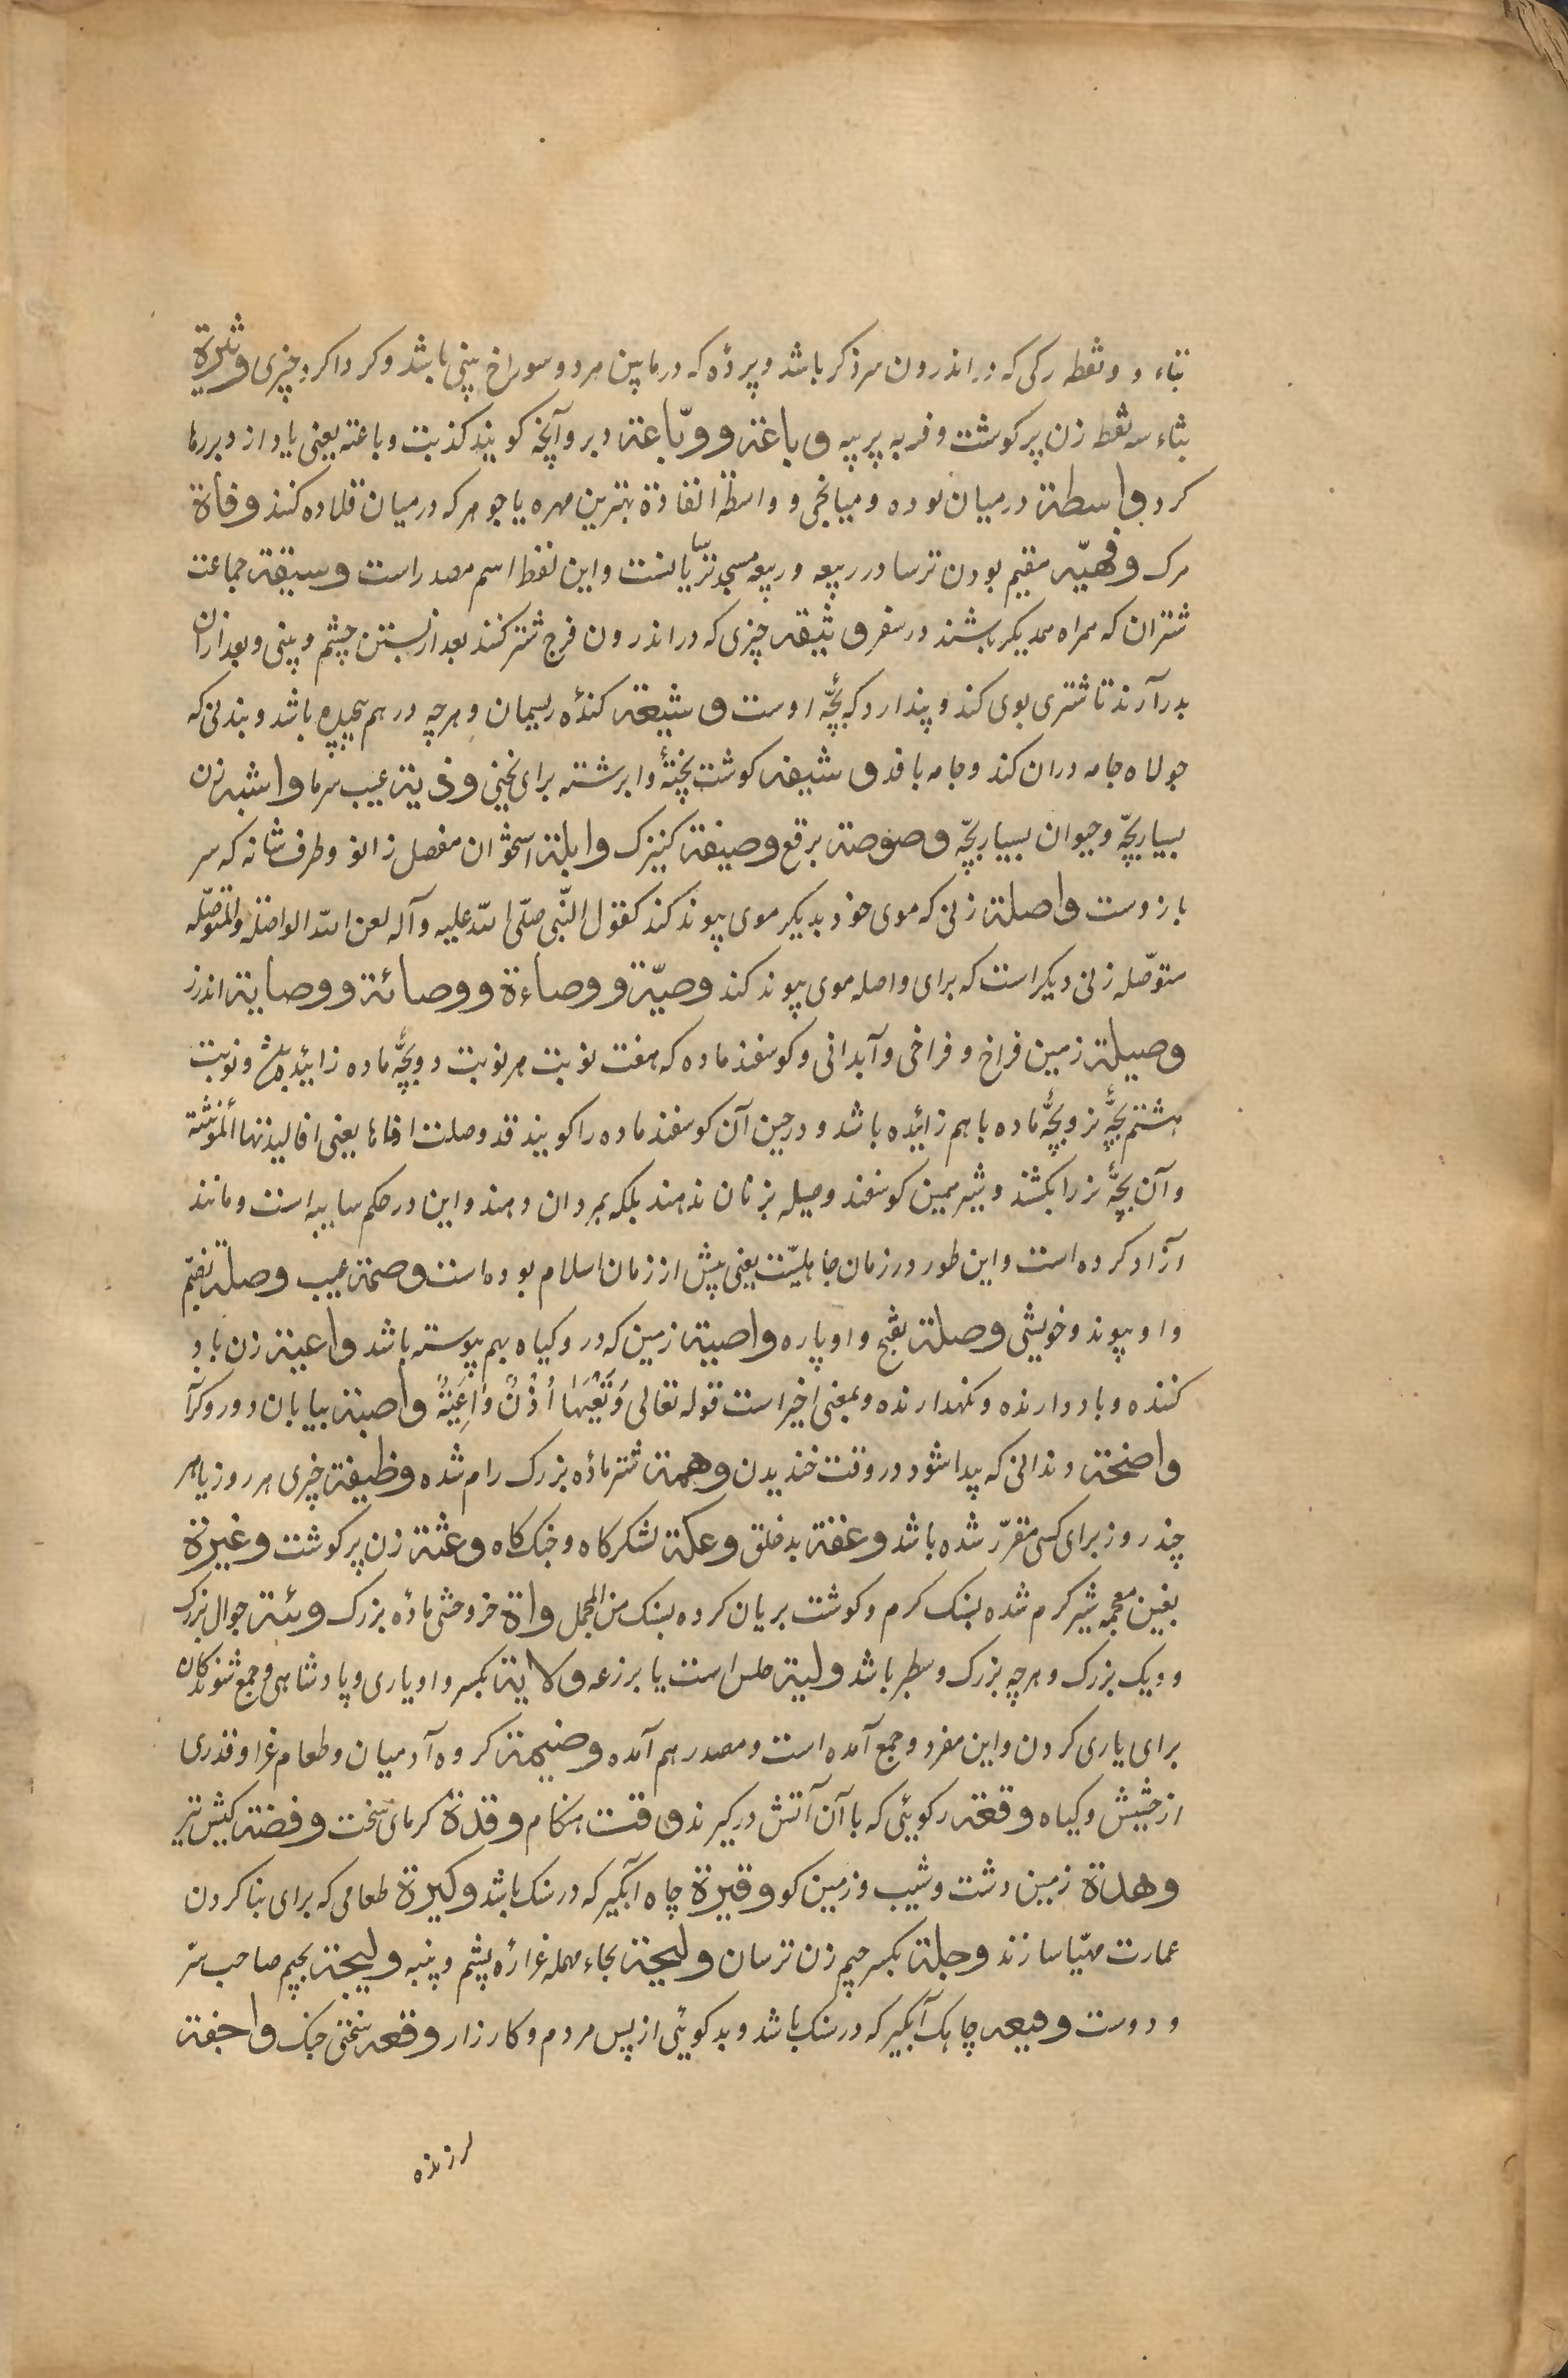 بتاء دو نقطه رکی که در اندرون سر ذکر باشد و پردهٔ که در مابین هر دو سوراخ بینی باشد و کرداکرد چیزی وثیرة
بثاء سه نقطه زن پر کوشت و فربه پر پیه وباغته ووبّاعته دبر و آنچه کویند کذبت وباعته یعنی باد از دبر رها
کرد واسطة در میان بوده و میانجی و واسطة القلادة بهترین مهره یا جوهر که در میان قلاده کنند وفاة
مرک وفهیّه مقیم بودن ترسا در ربیعه و ربیعه مسجد ترسایانست و این لفظ اسم مصدر است وسیقه جماعت
شتران که همراه همدیکر باشند در سفر وثیقه چیزی که در اندرون فرج شتر کنند بعد از بستن چشم و بینی و بعد از آن
بدر آرند تا شتری بوی کند و پندارد که بچّهٔ اوست وشیعة کندهٔ ریسمان و هر چه در هم پیچیده باشد و بندی که
جولاه جامه در ان کند و جامه بافد وشیقه کوشت پختهٔ وا برشته برای یخنی وذیة عیب سرما واشبه زن
بسیار بچّه و حیوان بسیار بچّه وصوصة برقع وصیفة کنیزک وابلة استخوان مفصل زانو و طرف شانه که سر
بازوست واصلة زنی که موی خود بدیکر موی پیوند کند کقول النّبی صلّی الله علیه و آله لعن الله الواصلة والمتوصّله
متوصّله زنی دیکر است که برای واصله موی پیوند کند وصیّة ووصاءة ووصائة ووصایة اندرز
وصیلة زمین فراخ و فراخی و آبدانی و کوسفند ماده که هفت نوبت هر نوبت دو بچّهٔ ماده زائیده باشد و نوبت
هشتم بچّهٔ نر و بچّهٔ ماده باهم زائیده باشد و در حین آن کوسفند ماده را کویند قد وصلت اخاها یعنی اخا لیدنها المؤنثة
و آن بچّهٔ نر را بکشند و شیر همین کوسفند وصیله بزنان ندهند بلکه بمردان دهند و این در حکم سایبه است و مانند
آزاد کرده است و این طور در زمان جاهلیّت یعنی پیش از زمان اسلام بوده است وصمة عیب وصلة بضمّ
واو پیوند و خویشی وصلة بفتح واو پاره واصیة زمین که در و کیاه بهم پیوسته باشد واعیة زن باد
کننده و باد دارنده و نکهدارنده و بمعنی اخیر است قوله تعالی وَتَعِیَهَا أُذُنٌ وَاعِیَةٌ واصبة بیابان دور و کرآ
واضحة دندانی که پیدا شود در وقت خندیدن وهمة شتر مادهٔ بزرک رام شده وظیفة چیزی هر روز یا هر
چند روز برای کسی مقرّر شده باشد وعقة بد خلق وعکة لشکرکاه و جنک کاه وعثة زن پر کوشت وغیرة
بغین معجمه شیر کرم شده بسنک کرم و کوشت بریان کرده بسنک من المجمل واة خر وحشی مادهٔ بزرک وئیة جوال بزرک
و دیک بزرک و هر چه بزرک و سطبر باشد ولیة حلس است یا برزعه ولایة بکسر واو یاری و پادشاهی و جمع شوندکان
برای یاری کردن و این مفرد و جمع آمده است و مصدر هم آمده وضیمة کروه آدمیان و طعام عزا و قدری
از حشیش و کیاه وقعة رکوئی که با آن آتش درکیرند وقت هنکام وقدة کرمای سخت وفضة کیش تیر
وهدة زمین دشت و شیب و زمین کو وقیرة چاه آبگیر که در سنک باشد وکیرة طعامی که برای بنا کردن
عمارت مهیّا سازند وجلة بکسر جیم زن ترسان ولیحة بحاء مهمله غرارهٔ پشم و پنبه ولیجة بجیم صاحب سرّ
و دوست وقیعه چاهک آبگیر که در سنک باشد و بدکوئی از پس مردم و کارزار وقعه سختی جنک واجفة
لرزنده